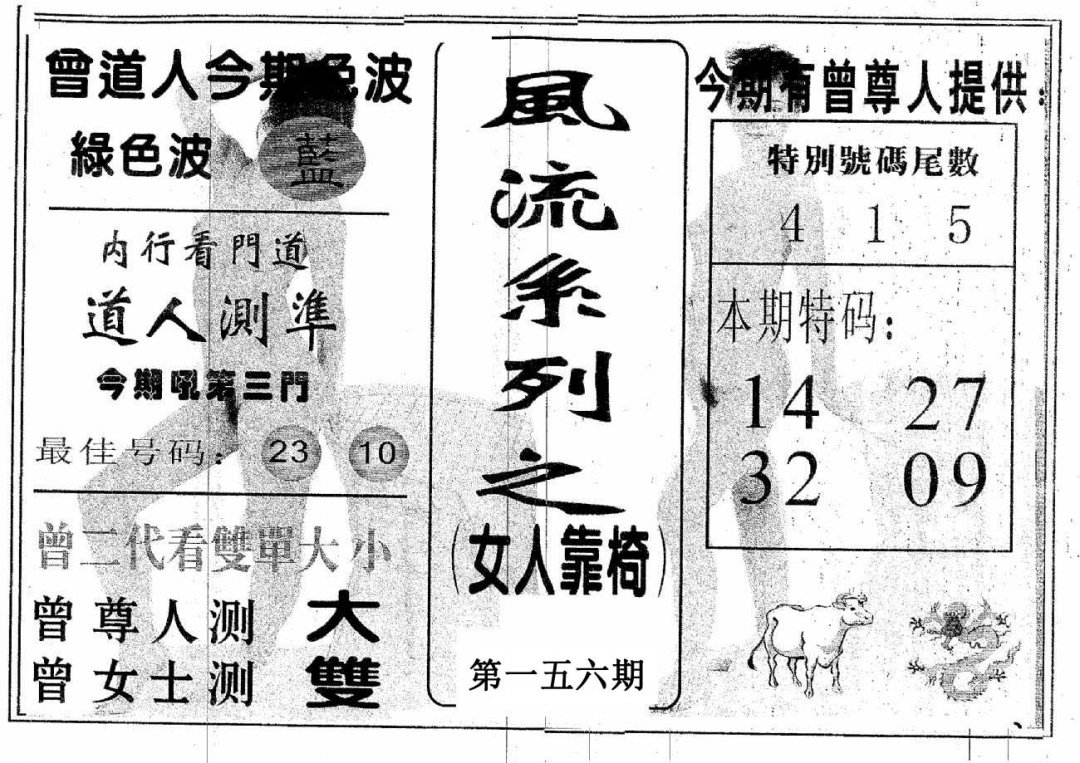 曾道人今期色波
綠色波 藍
内行看門道
道人測準
今期吼第三門
最佳号码： 23 10
曾二代看雙單大小
曾尊人测 大
曾女士测 雙
風流系列之
（女人靠椅）
第一五六期
今期有曾尊人提供：
特別號碼尾數
4 1 5
本期特码：
14 27
32 09